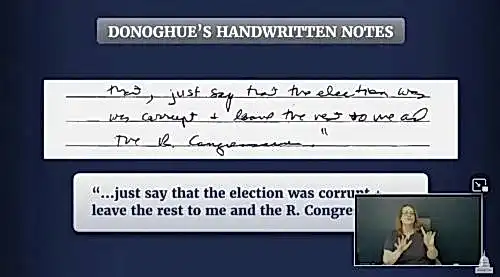 DONOGHUE'S HANDWRITTEN NOTES
that, just say that the election was
was corrupt + leave the rest to me and
the R. Congressmen."
"...just say that the election was corrupt +
leave the rest to me and the R. Congre